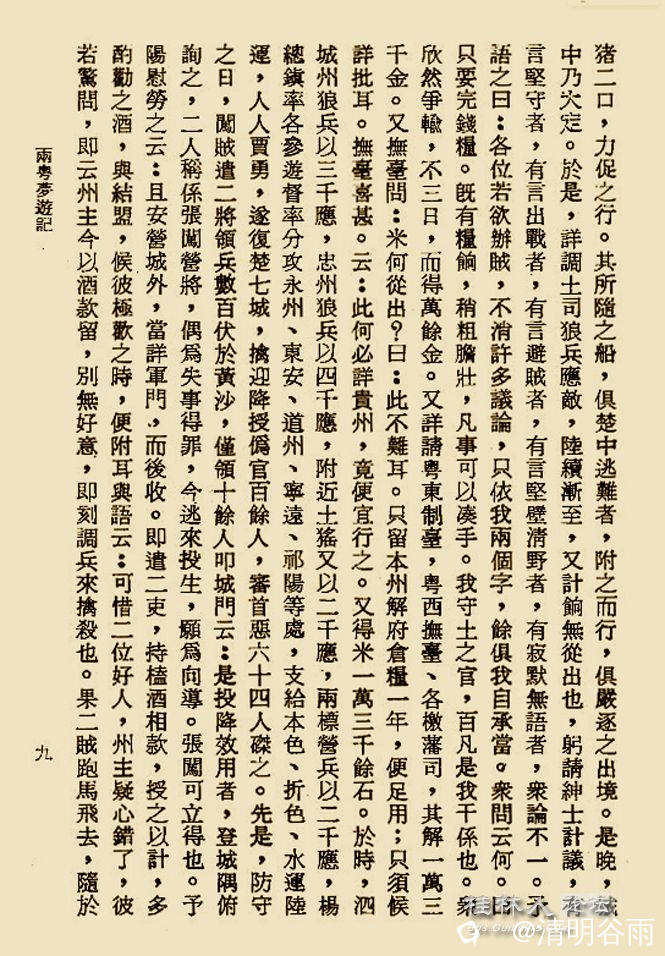 猪二口，力促之行。其所隨之船，俱楚中逃難者，附之而行，俱嚴逐之出境。是晚，城
中乃大定。於是，詳調土司狼兵應敵，陸續漸至，又計餉無從出也，躬請紳士計議，有
言堅守者，有言出戰者，有言避賊者，有言堅壁清野者，有寂默無語者，衆論不一。予
語之曰：各位若欲辦賊，不消許多議論，只依我兩個字，餘俱我自承當。衆問云何。曰
只要完錢糧。既有糧餉，稍粗膽壯，凡事可以凑手。我守土之官，百凡是我干係也。衆
欣然爭輸，不三日，而得萬餘金。又詳請粤東制臺，粤西撫臺、各檄藩司，其解一萬三
千金。又撫臺問：米何從出？曰：此不難耳。只留本州解府倉糧一年，便足用；只須候
詳批耳。撫臺喜甚。云：此何必詳貴州，竟便宜行之。又得米一萬三千餘石。於時，泗
城州狼兵以三千應，忠州狼兵以四千應，附近土猺又以二千應，兩標營兵以二千應，楊
總鎮率各參遊督率分攻永州、東安、道州、寧遠、祁陽等處，支給本色、折色、水運陸
運，人人賈勇，遂復楚七城，擒迎降授僞官百餘人，審首惡六十四人磔之。先是，防守
之日，闖賊遣二將領兵數百伏於黃沙，僅領十餘人叩城門云：是投降效用者，登城隅俯
詢之，二人稱係張闖營將，偶爲失事得罪，今逃來投生，願爲向導。張闖可立得也。予
陽慰勞之云：且安營城外，當詳軍門，而後收。即遣二吏，持榼酒相款，授之以計，多
酌勸之酒，與結盟，候彼極歡之時，便附耳與語云：可惜二位好人，州主疑心錯了，彼
若驚問，即云州主今以酒款留，別無好意，即刻調兵來擒殺也。果二賊跑馬飛去，隨於
兩粤夢遊記
九
桂林人论坛
@清明谷雨